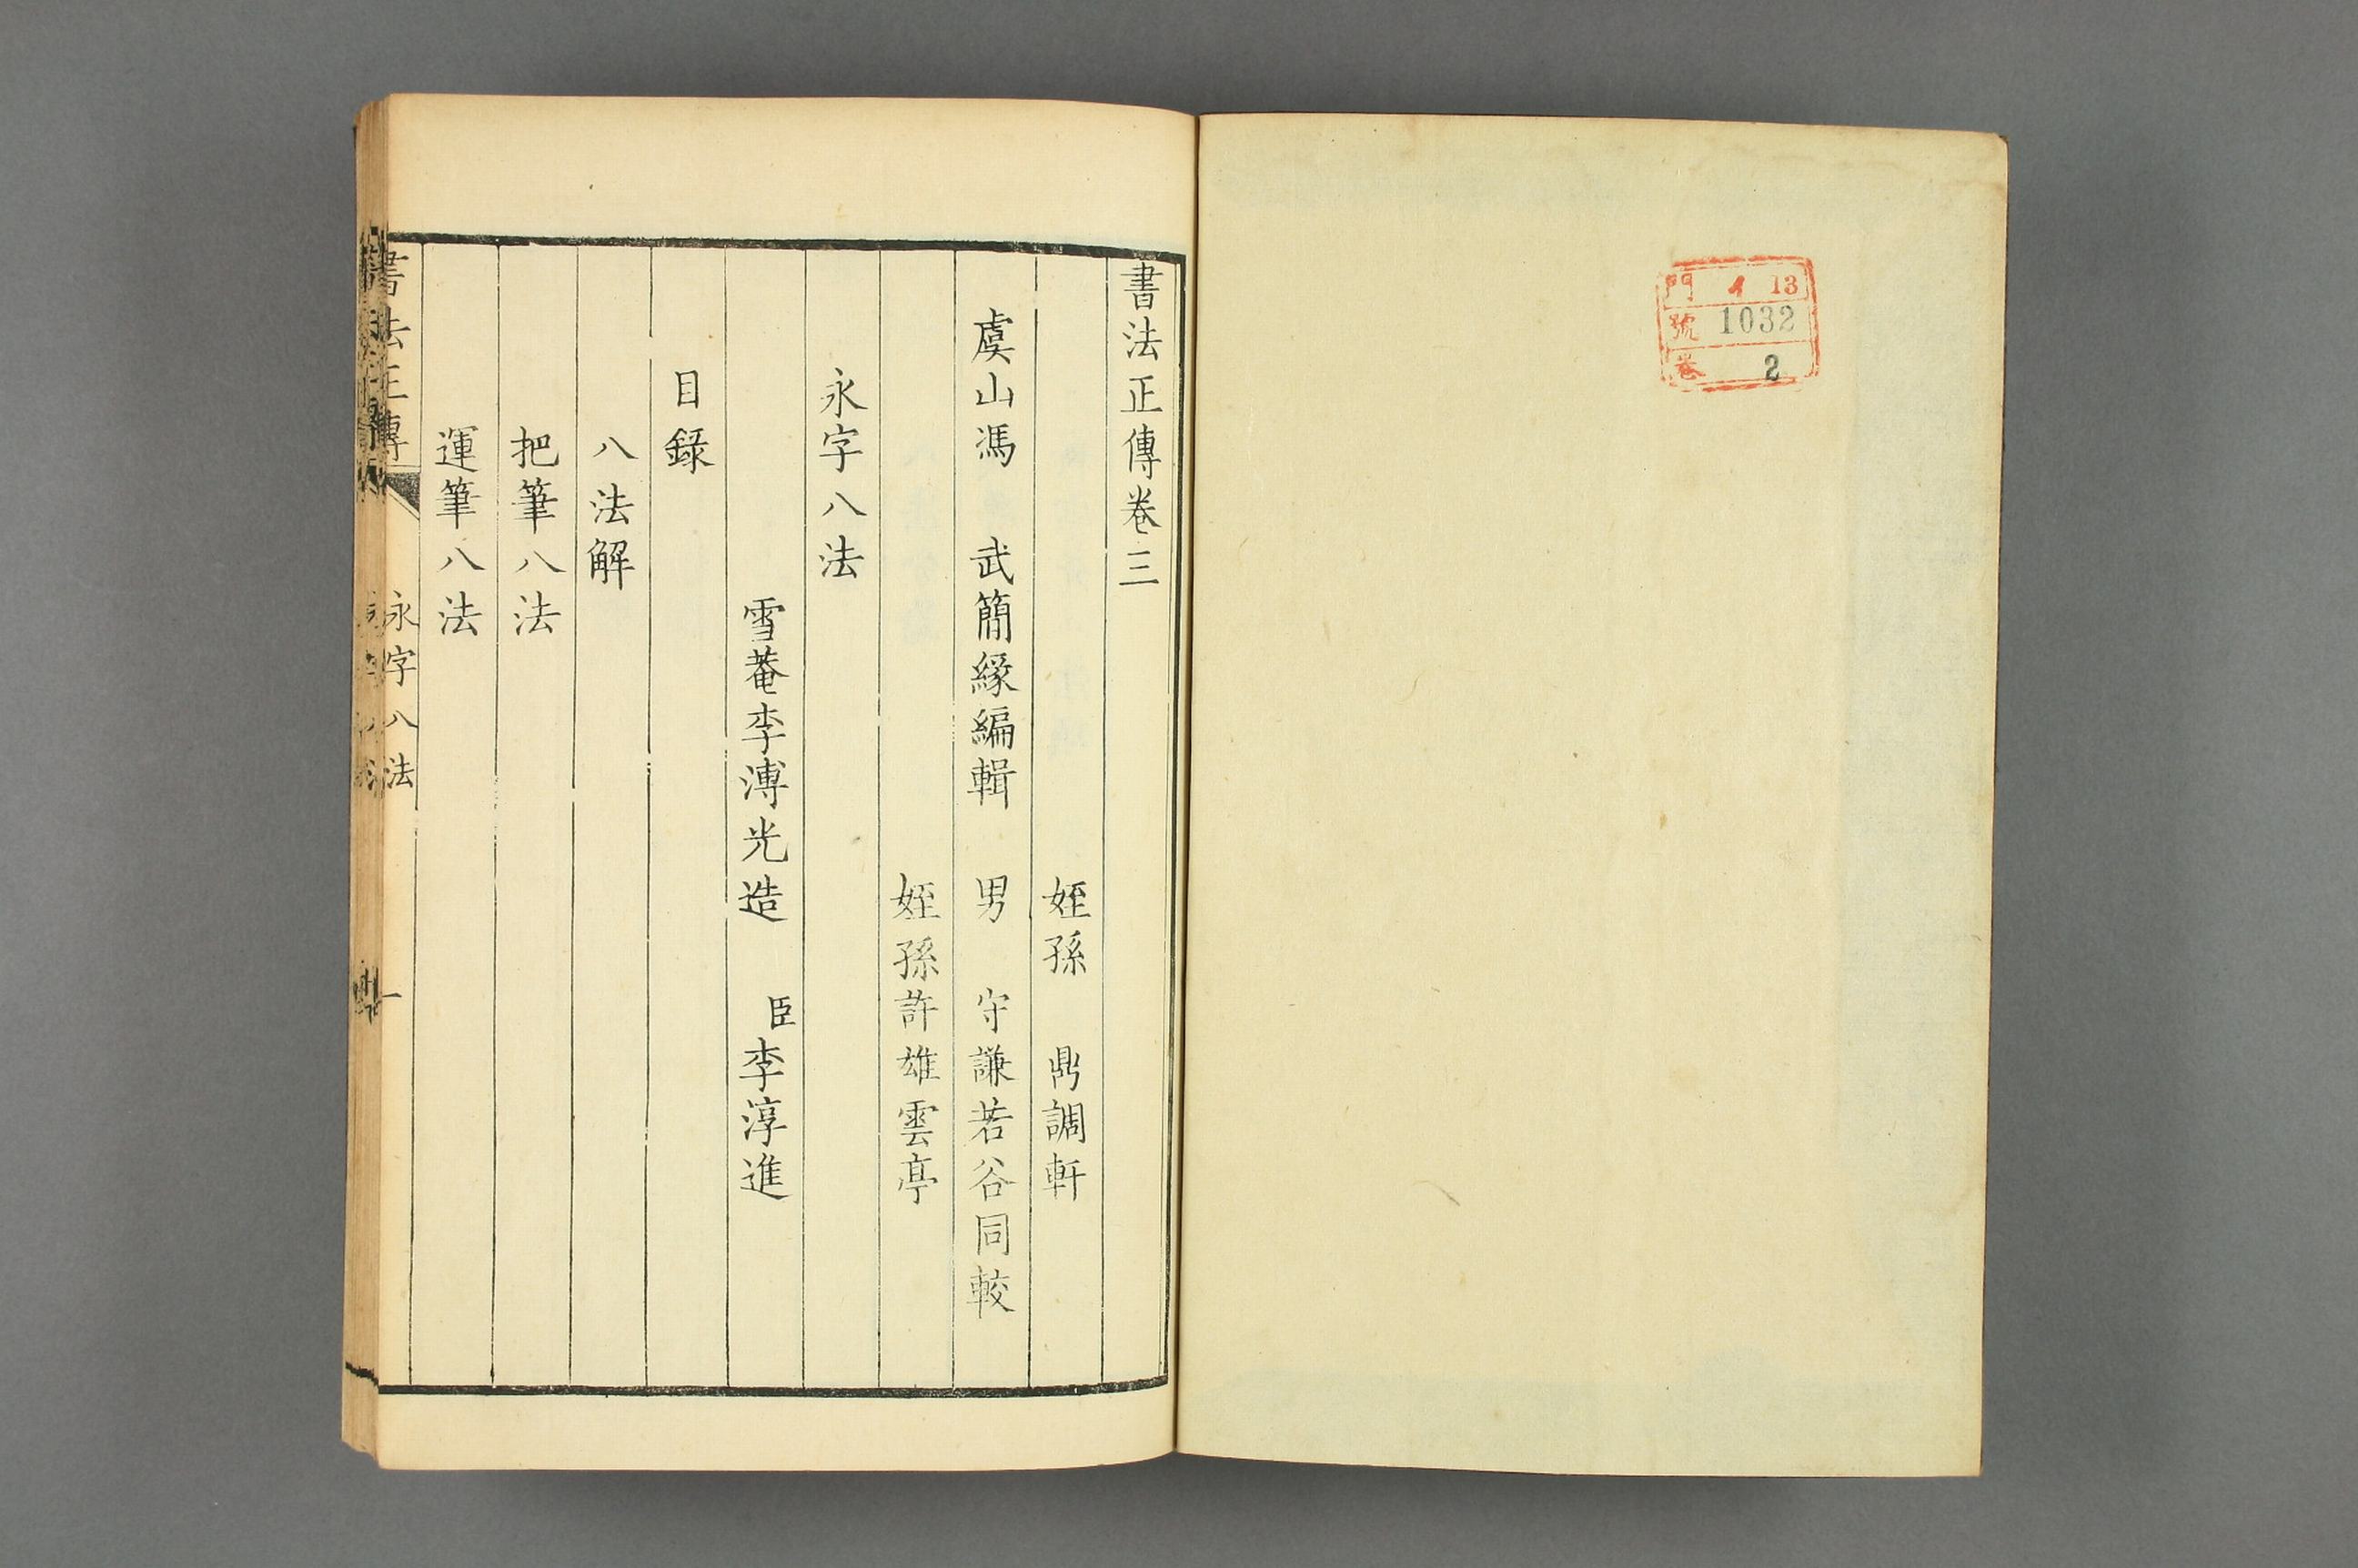 門 イ 13
號 1032
巻 2
書法正傳卷三
姪孫 鼎調軒
虞山馮 武簡緣編輯 男 守謙若谷同較
姪孫許雄雲亭
永字八法
雪菴李溥光造 臣李淳進
目録
八法解
把筆八法
運筆八法
書法正傳 永字八法 一